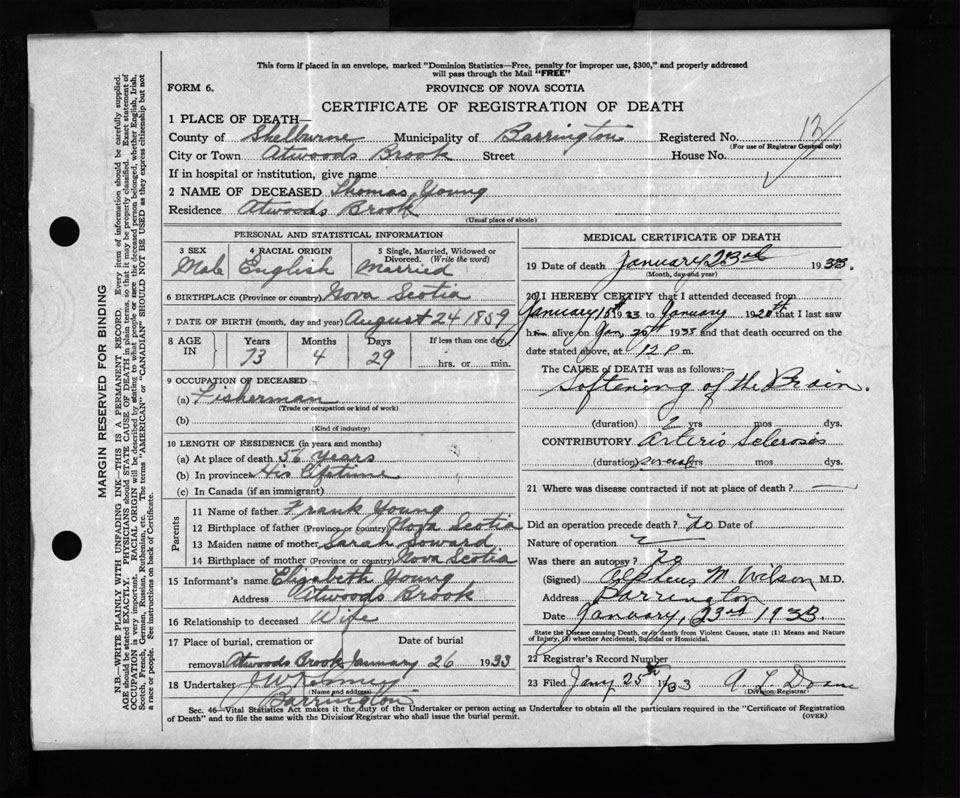 This form if placed in an envelope, marked "Dominion Statistics—Free, penalty for improper use, $300," and properly addressed
will pass through the Mail "FREE"
FORM 6.
PROVINCE OF NOVA SCOTIA
CERTIFICATE OF REGISTRATION OF DEATH
1 PLACE OF DEATH—
County of Shelburne Municipality of Barrington Registered No. 12
(For use of Registrar General only)
City or Town Atwoods Brook Street House No.
If in hospital or institution, give name
2 NAME OF DECEASED Thomas Young
Residence Atwoods Brook
(Usual place of abode)
PERSONAL AND STATISTICAL INFORMATION
3 SEX 4 RACIAL ORIGIN 5 Single, Married, Widowed or
Divorced. (Write the word)
Male English Married
6 BIRTHPLACE (Province or country) Nova Scotia
7 DATE OF BIRTH (month, day and year) August 24 1859
8 AGE IN Years Months Days If less than one day,
73 4 29 hrs. or min.
9 OCCUPATION OF DECEASED
(a) Fisherman
(Trade or occupation or kind of work)
(b)
(Kind of industry)
10 LENGTH OF RESIDENCE (in years and months)
(a) At place of death 56 years
(b) In province His lifetime
(c) In Canada (if an immigrant)
Parents
11 Name of father Frank Young
12 Birthplace of father (Province or country) Nova Scotia
13 Maiden name of mother Sarah Soward
14 Birthplace of mother (Province or country) Nova Scotia
15 Informant's name Elizabeth Young
Address Atwoods Brook
16 Relationship to deceased Wife
17 Place of burial, cremation or Date of burial
removal Atwoods Brook January 26 1933
18 Undertaker J W
(Name and address)
Barrington
MEDICAL CERTIFICATE OF DEATH
19 Date of death January 23rd 1933.
(Month, day and year)
20 I HEREBY CERTIFY that I attended deceased from
January 10th 1933 to January 1920th that I last saw
him alive on Jan, 20th 1933 and that death occurred on the
date stated above, at 12 P m.
The CAUSE OF DEATH was as follows:—
Softening of the Brain.
(duration) 2 yrs mos dys.
CONTRIBUTORY Arterio Sclerosis
(duration) several yrs mos dys.
21 Where was disease contracted if not at place of death?
Did an operation precede death? No Date of
Nature of operation
Was there an autopsy? No
(Signed) Alpheus M. Wilson M.D.
Address Barrington
Date January, 23rd 1933
State the Disease causing Death, or in death from Violent Causes, state (1) Means and Nature
of Injury, (2) whether Accidental, Suicidal or Homicidal.
22 Registrar's Record Number
23 Filed Jany 25th 1933 A. L. Doane
(Division Registrar)
Sec. 46—Vital Statistics Act makes it the duty of the Undertaker or person acting as Undertaker to obtain all the particulars required in the "Certificate of Registration
of Death" and to file the same with the Division Registrar who shall issue the burial permit.
(OVER)
MARGIN RESERVED FOR BINDING
N.B—WRITE PLAINLY WITH UNFADING INK—THIS IS A PERMANENT RECORD. Every item of information should be carefully supplied.
AGE should be stated EXACTLY. PHYSICIANS should STATE CAUSE OF DEATH in plain terms, so that it may be properly classified. Exact statement of
OCCUPATION is very important. RACIAL ORIGIN will be described by stating to what people or race the deceased person belonged, whether English, Irish,
Scotch, French, German, Russian, Ruthenian, etc. The terms "AMERICAN" or "CANADIAN" SHOULD NOT BE USED as they express citizenship but not
a race or people. See instructions on back of Certificate.